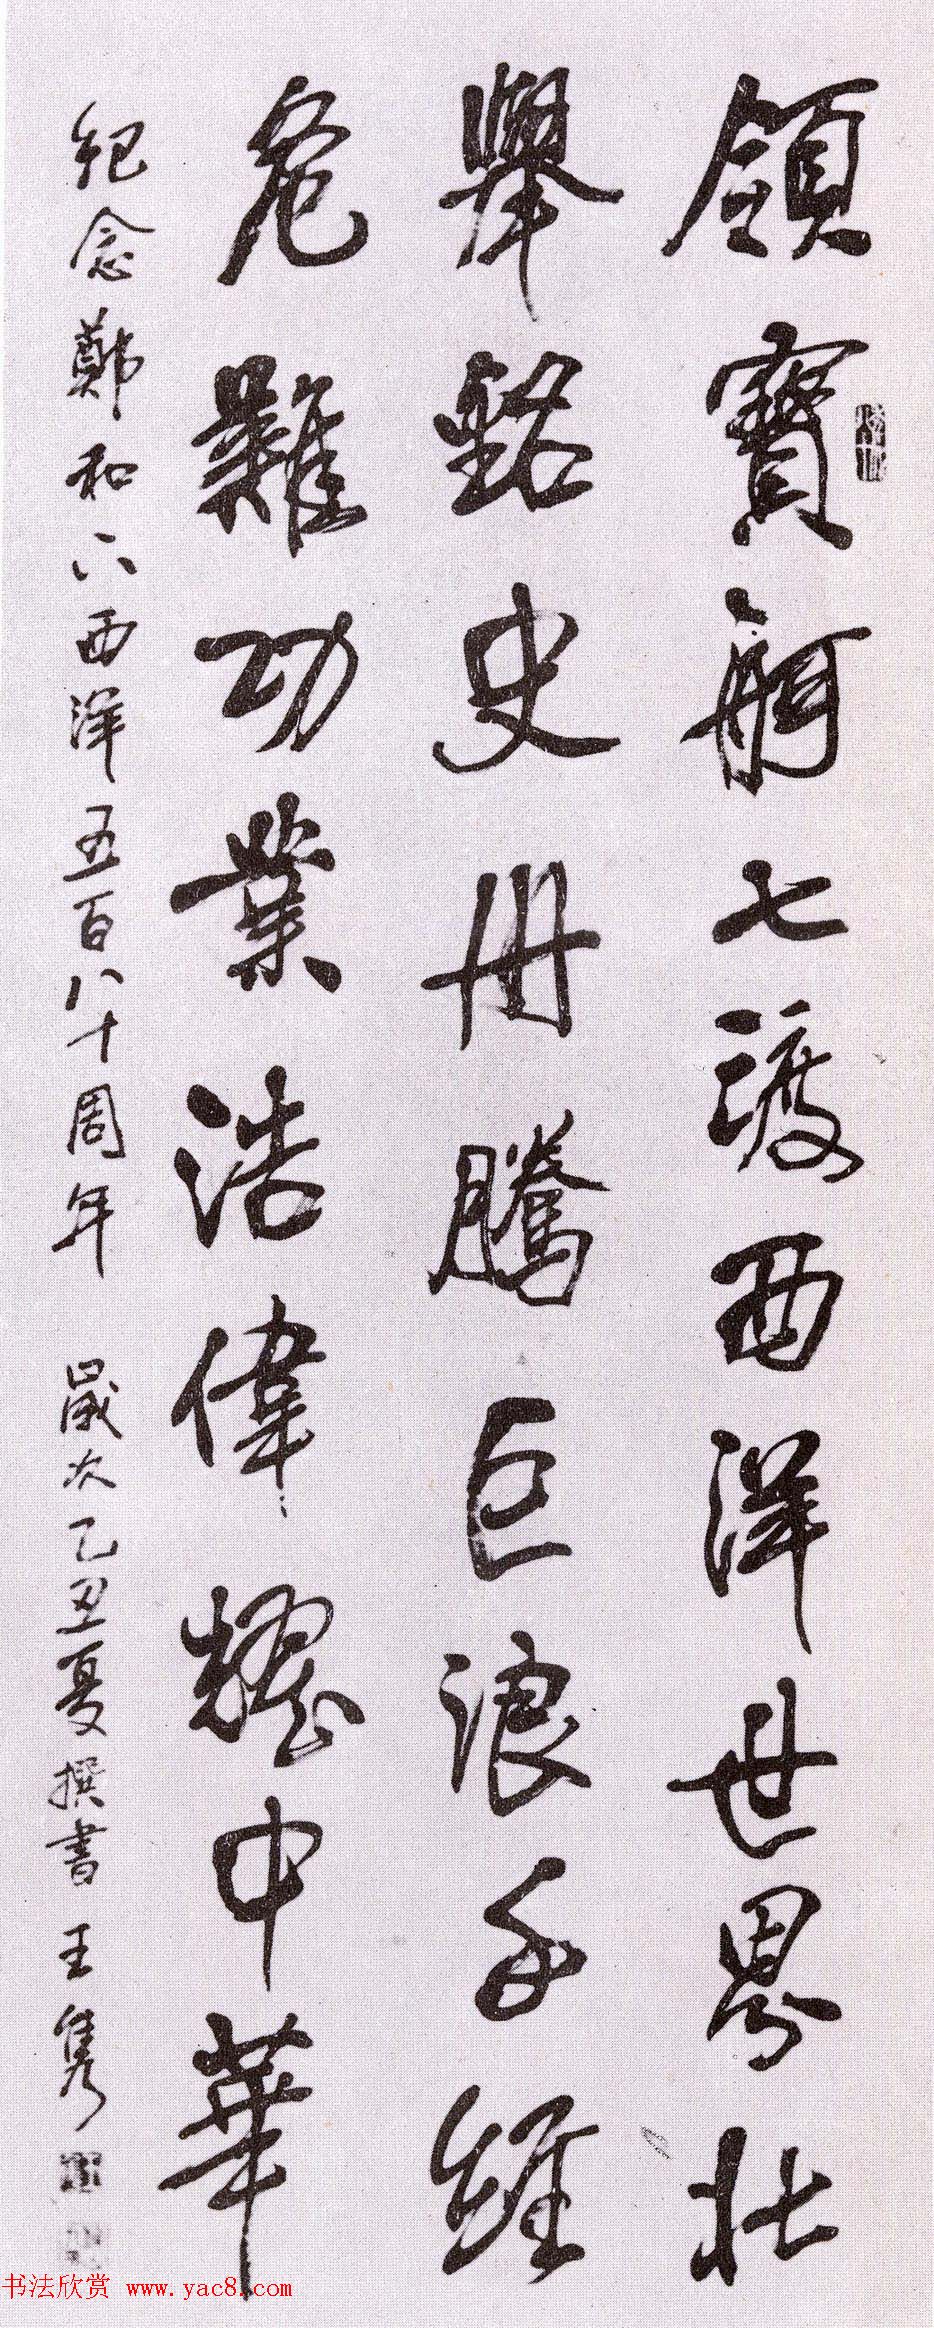 領寶舸七渡西洋世界壯
舉銘史冊騰巨浪千
危難功業浩偉耀中華
紀念鄭和下西洋五百八十周年 歲次乙丑夏撰書 王隽
书法欣赏 www.yac8.com